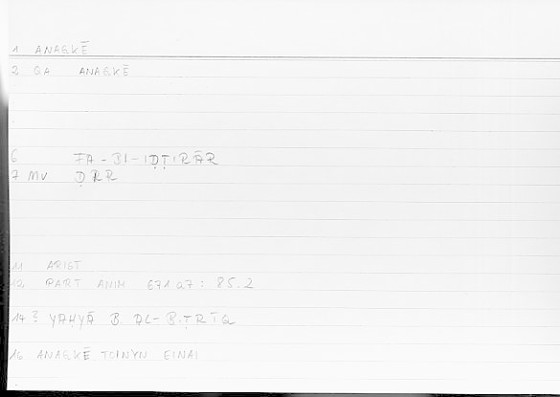 1 ANAGKĒ
2 GA ANAGKĒ
6 FA-BI-IḌṬIRĀR
7 MV ḌRR
11 ARIST
12 PART ANIM 671 a7: 85.2
14 ? YAḤYĀ B. AL-BIṬRĪQ
16 ANAGKĒ TOINYN EINAI